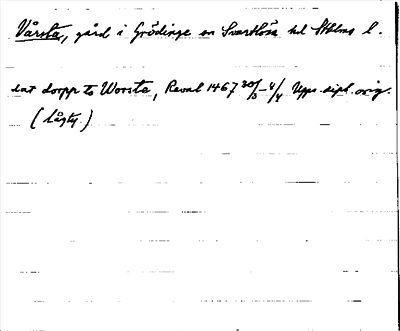 Vårsta, gård i Grödinge sn Svartlösa hd Sthlms l.
dat dorpp to Worsta, Reval 1467 30/3-4/4 Upps. dipl. orig.
(lågty.)